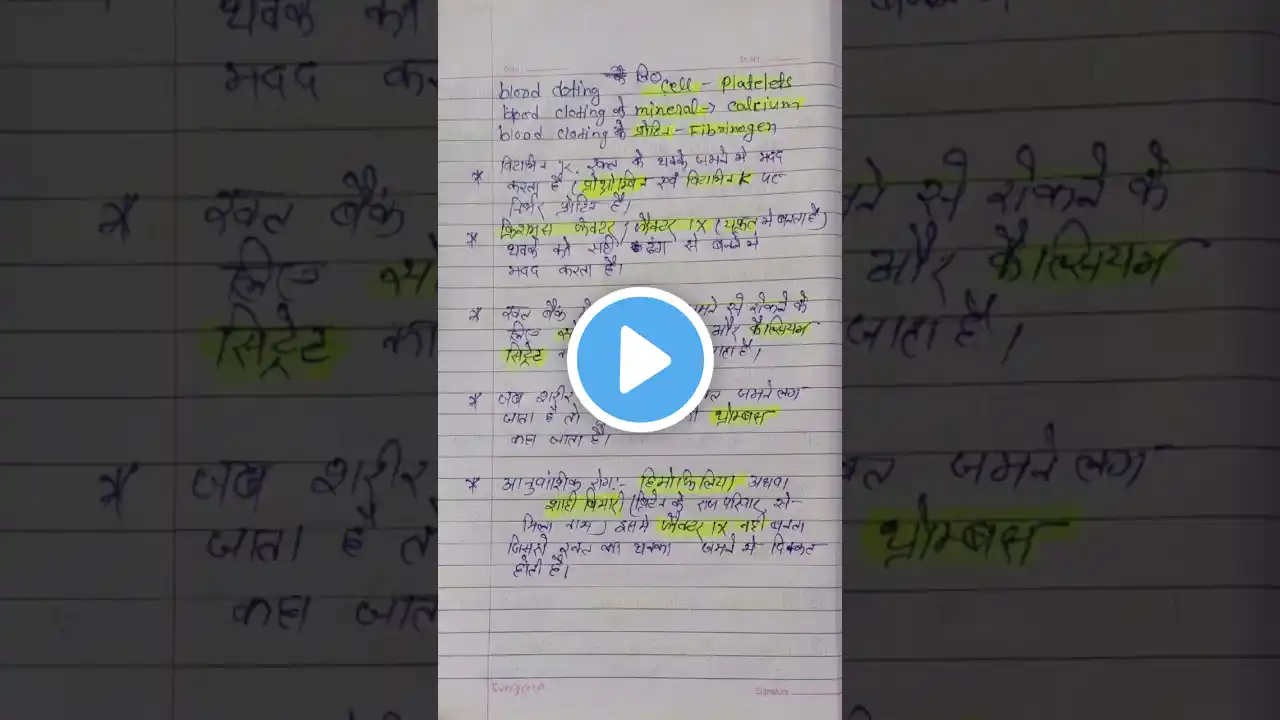 blood cloting के लिए cell - Platelets
blood cloting के mineral → Calcium
blood cloting के प्रोटिन - Fibrinogen
विटामिन K. रक्त के थक्के जमने मे मदद
* करता है (प्रोथोम्बिन एवं विटामिन K पर
निर्भर प्रोटिन है।
क्रिसमस फैक्टर / फैक्टर IX (यकृत मे बनता है)
* थक्के को सही ढंग से बनने मे
मदद करता है।
* रक्त बैंक जमने से रोकने के
लिए और कैल्सियम
सिट्रेट जाता है।
* जब शरीर जमने लग
जाता है तो थ्रोम्बस
कहा जाता है।
* आनुवांशिक रोग:- हिमोफिलिया अथवा
शाही बिमारी (ब्रिटेन के राज परिवार से
मिला नाम) इसमे फैक्टर IX नही बनता
जिससे रक्त का थक्का जमने मे दिक्कत
होती है।
Evergreen